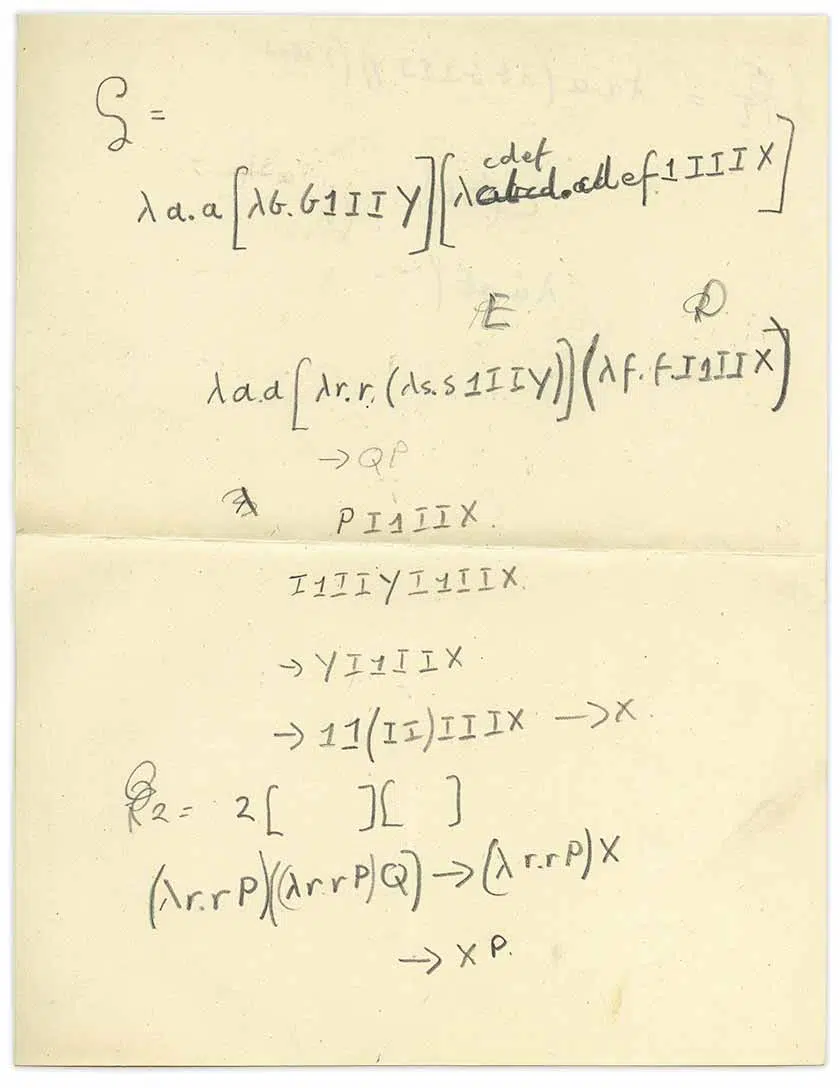 ζ =
cdef
λa.a[λb.b1IIy][λ ef1IIIX]
E D
λa.a[λr.r.(λs.s1IIy)](λf.f.I1IIX)
→QP
λ
PI1IIX.
I1IIyI1IIX.
→yI1IIX
→11(II)IIIX →X.
2= 2[ ][ ]
(λr.rP)((λr.rP)Q)→(λr.rP)X
→XP.